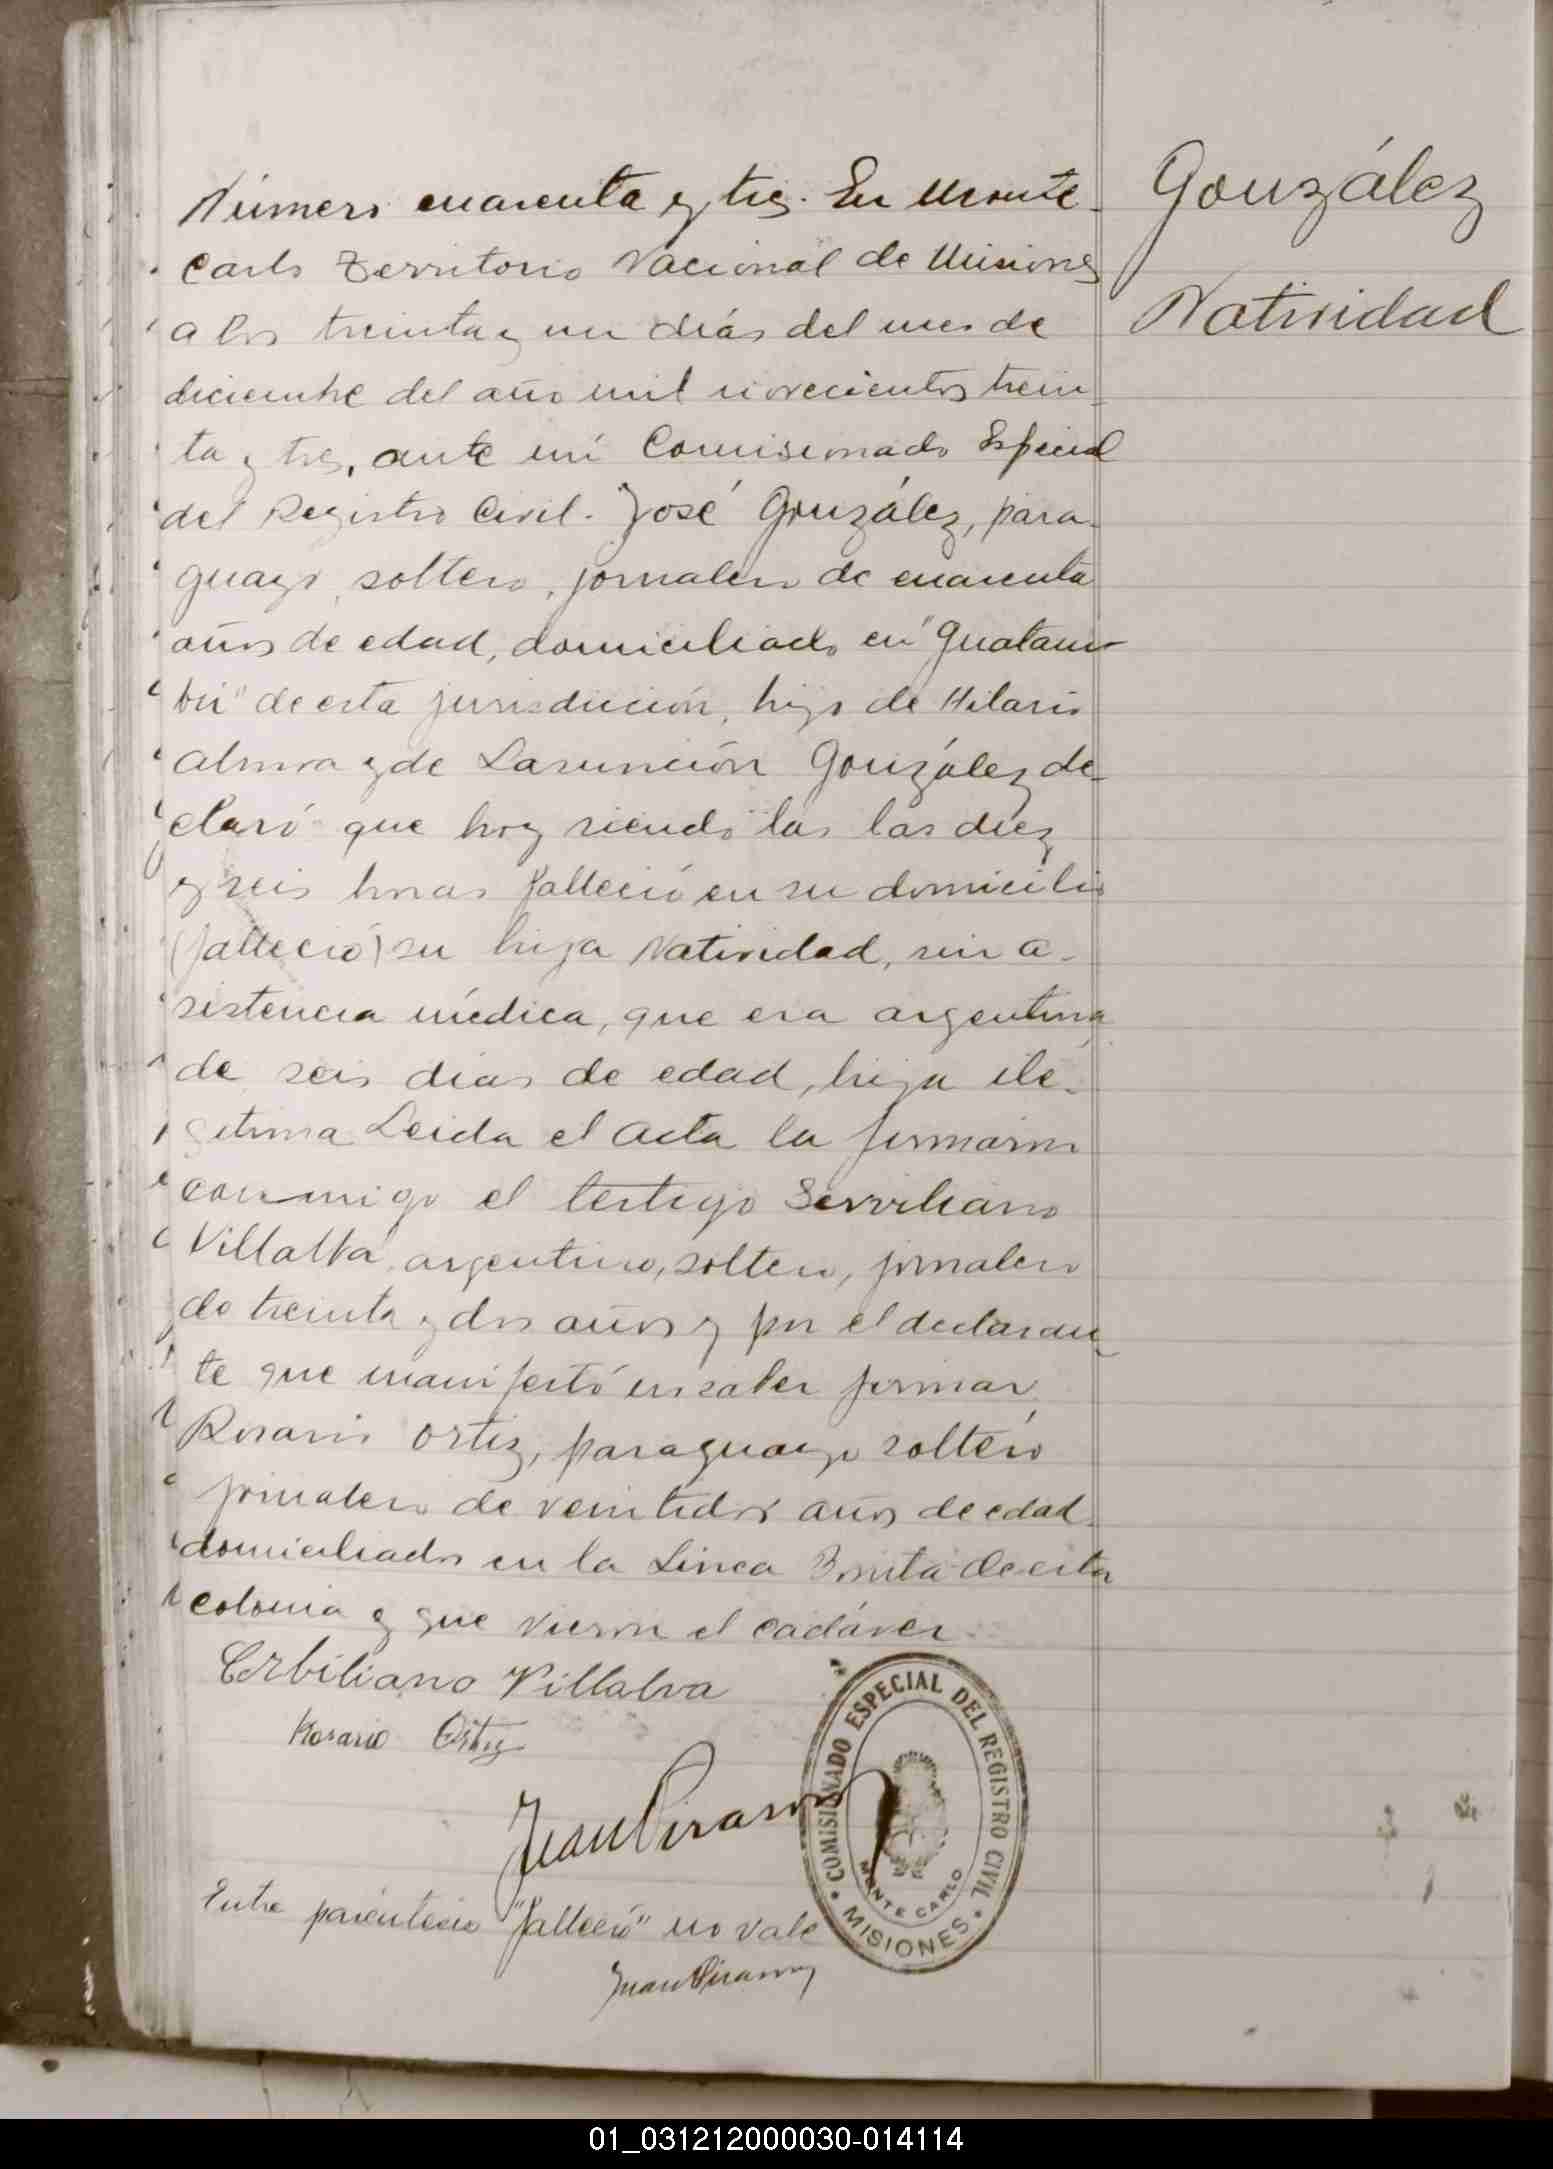 Número cuarenta y tres. En Monte
Carlo Territorio Nacional de Misiones
a los treinta y un días del mes de
diciembre del año mil novecientos trein
ta y tres, ante mí Comisionado Especial
del Registro Civil. José González, para-
guayo, soltero, jornalero de cuarenta
años de edad, domiciliado en "Guatam
bú" de esta jurisdicción, hijo de Hilario
y de Lasunción González de-
claró que hoy siendo las las diez
y seis horas falleció en su domicilio
(falleció) su hija Natividad, sin a-
sistencia médica, que era argentina
de seis días de edad, hija ile-
gitima Leida el acta la firmaron
conmigo el testigo Serviliano
Villalba, argentino, soltero, jornalero
de treinta y dos años y por el declaran
te que manifestó no saber firmar,
Rosario Ortiz, paraguayo soltero
jornalero de veintidos años de edad
domiciliados en la Linea Bonita de esta
colonia y que vieron el cadáver.
Cerbiliano Villalva
Rosario Ortiz
Entre paréntesis "falleció" no vale
González
Natividad
COMISIONADO ESPECIAL DEL REGISTRO CIVIL
MONTE CARLO
MISIONES
01_031212000030-014114